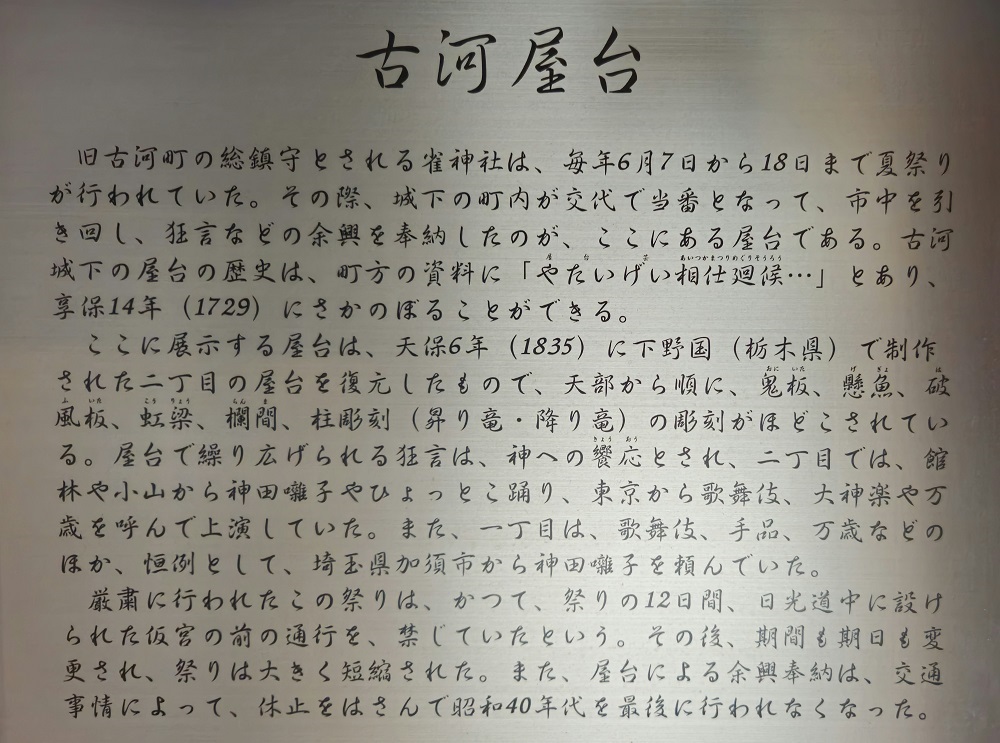 古河屋台
旧古河町の総鎮守とされる雀神社は、毎年6月7日から18日まで夏祭り
が行われていた。その際、城下の町内が交代で当番となって、市中を引
き回し、狂言などの余興を奉納したのが、ここにある屋台である。古河
城下の屋台の歴史は、町方の資料に「やたいげい相仕廻候…」とあり、
享保14年（1729）にさかのぼることができる。
ここに展示する屋台は、天保6年（1835）に下野国（栃木県）で制作
された二丁目の屋台を復元したもので、天部から順に、鬼板、懸魚、破
風板、虹梁、欄間、柱彫刻（昇り竜・降り竜）の彫刻がほどこされてい
る。屋台で繰り広げられる狂言は、神への饗応とされ、二丁目では、館
林や小山から神田囃子やひょっとこ踊り、東京から歌舞伎、大神楽や万
歳を呼んで上演していた。また、一丁目は、歌舞伎、手品、万歳などの
ほか、恒例として、埼玉県加須市から神田囃子を頼んでいた。
厳粛に行われたこの祭りは、かつて、祭りの12日間、日光道中に設け
られた仮宮の前の通行を、禁じていたという。その後、期間も期日も変
更され、祭りは大きく短縮された。また、屋台による余興奉納は、交通
事情によって、休止をはさんで昭和40年代を最後に行われなくなった。